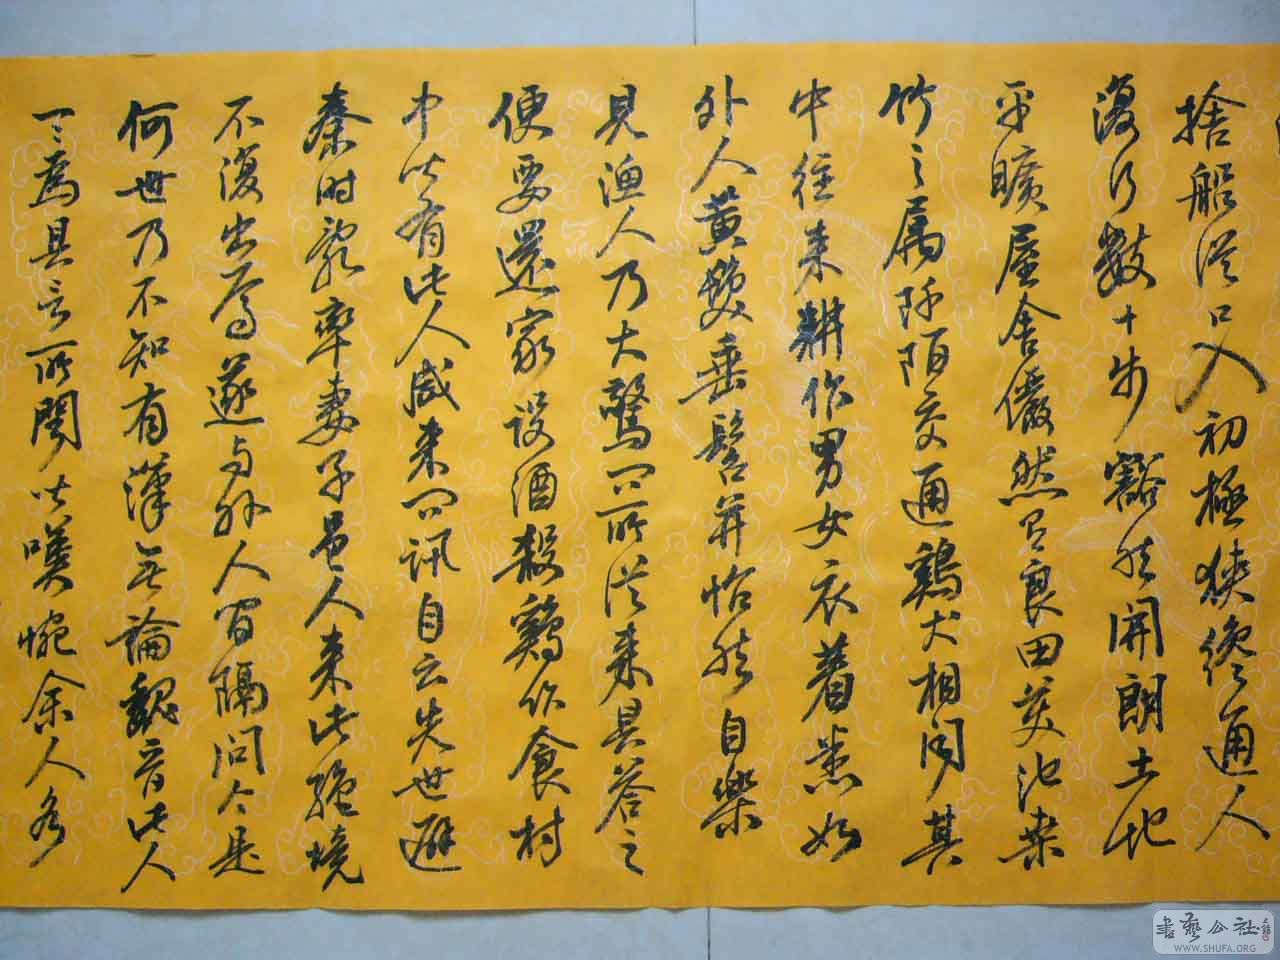 捨船從口入初極狹纔通人
復行數十步豁然開朗土地
平曠屋舍儼然有良田美池桑
竹之屬阡陌交通鷄犬相聞其
中往來耕作男女衣著悉如
外人黃髮垂髫并怡然自樂
見漁人乃大驚問所從來具答之
便要還家設酒殺鷄作食村
中聞有此人咸來問訊自云先世避
秦時亂率妻子邑人來此絕境
不復出焉遂與外人間隔問今是
何世乃不知有漢無論魏晉此人
一一為具言所聞皆嘆惋余人各
書藝公社
WWW.SHUFA.ORG